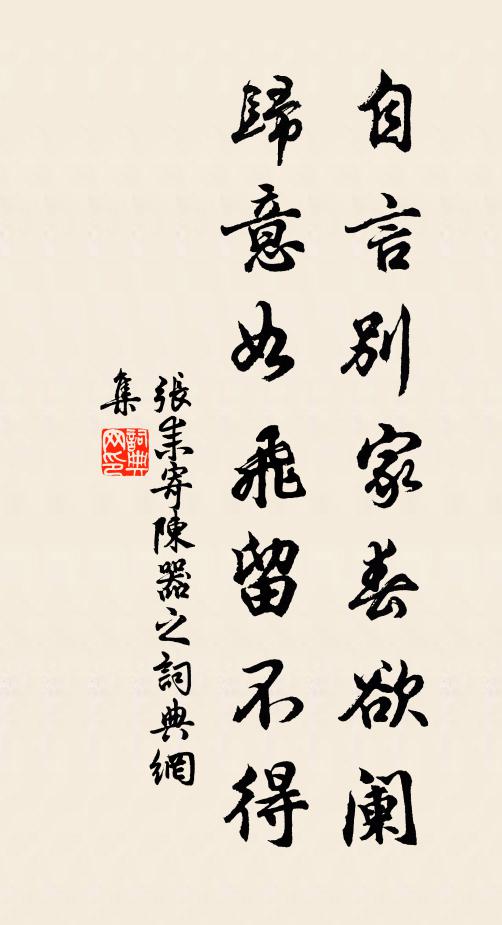 自言别家春欲阑
歸意如飛留不得
張耒寄陳器之詞典網
集
詞典
网印